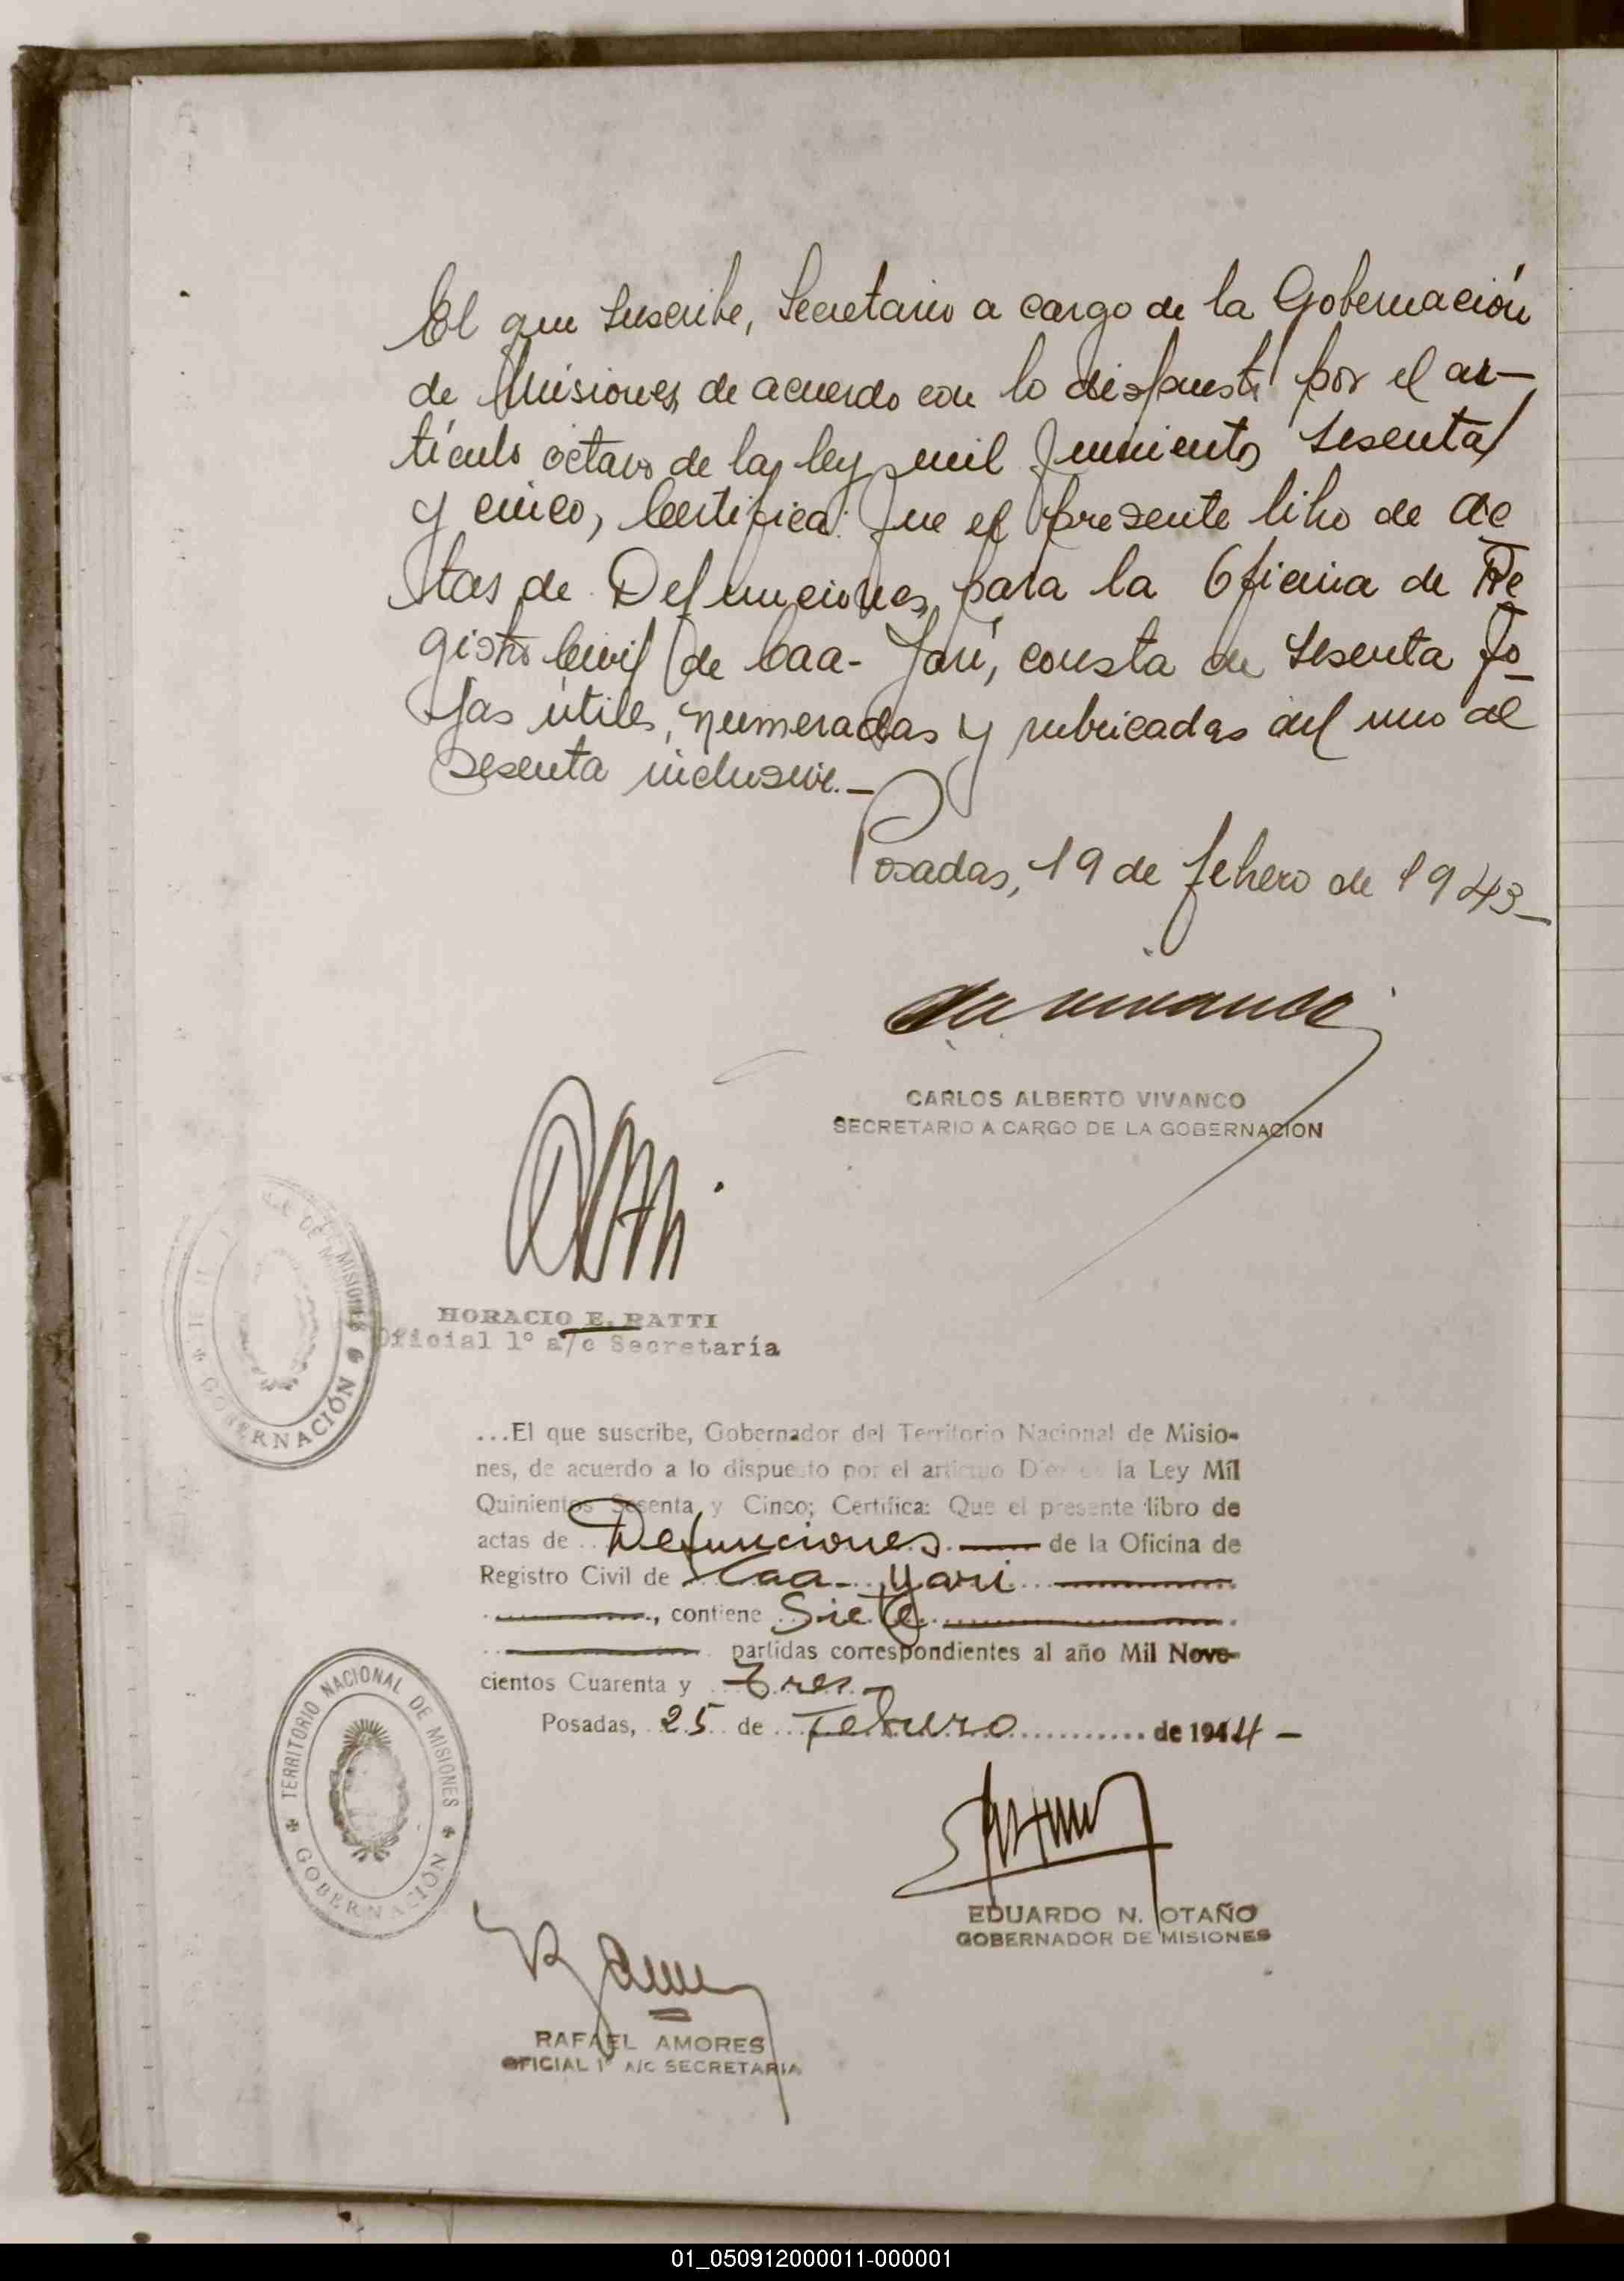 El que suscribe, Secretario a cargo de la Gobernación
de Misiones, de acuerdo con lo dispuesto por el ar-
tículo octavo de la ley mil quinientos sesenta
y cinco, Certifica: que el presente libro de Ac
tas de Defunciones, para la Oficina de Re
gistro Civil de Caa-Yarí, consta de sesenta fo-
jas útiles, numeradas y rubricadas del uno al
sesenta inclusive.—
Posadas, 19 de febrero de 1943—
CARLOS ALBERTO VIVANCO
SECRETARIO A CARGO DE LA GOBERNACION
HORACIO E. RATTI
Oficial 1º a/c Secretaría
DE MISIONES
GOBERNACIÓN
...El que suscribe, Gobernador del Territorio Nacional de Misio-
nes, de acuerdo a lo dispuesto por el artículo Diez de la Ley Mil
Quinientos Sesenta y Cinco; Certifica: Que el presente libro de
actas de Defunciones — de la Oficina de
Registro Civil de Caa-Yari
, contiene Siete
partidas correspondientes al año Mil Nove-
cientos Cuarenta y Tres—
Posadas, 25 de Febrero de 1944 —
TERRITORIO NACIONAL DE MISIONES
GOBERNACIÓN
EDUARDO N. OTAÑO
GOBERNADOR DE MISIONES
RAFAEL AMORES
OFICIAL 1º A/C SECRETARIA
01_050912000011-000001